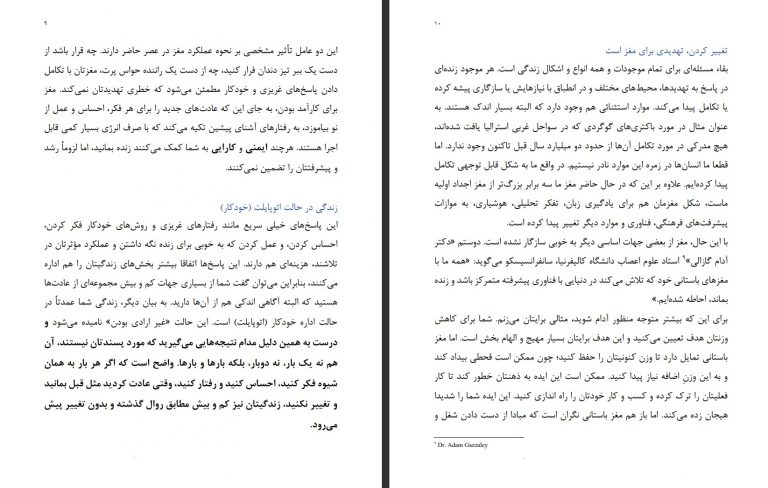 ۹
این دو عامل تأثیر مشخصی بر نحوه عملکرد مغز در عصر حاضر دارند. چه قرار باشد از
دست یک ببر تیز دندان فرار کنید، چه از دست یک راننده حواس پرت، مغزتان با تکامل
دادن پاسخ‌های غریزی و خودکار مطمئن می‌شود که خطری تهدیدتان نمی‌کند. مغز
برای کارآمد بودن، به جای این که عادت‌های جدید را برای هر فکر، احساس و عمل از
نو بیاموزد، به رفتارهای آشنای پیشین تکیه می‌کند که با صرف انرژی بسیار کمی قابل
اجرا هستند. هرچند ایمنی و کارایی به شما کمک می‌کنند زنده بمانید، اما لزوماً رشد
و پیشرفتتان را تضمین نمی‌کنند.
زندگی در حالت اتوپایلت (خودکار)
این پاسخ‌های خیلی سریع مانند رفتارهای غریزی و روش‌های خودکار فکر کردن،
احساس کردن، و عمل کردن که به خوبی برای زنده نگه داشتن و عملکرد مؤثرتان در
تلاشند، هزینه‌ای هم دارند. این پاسخ‌ها اتفاقا بیشتر بخش‌های زندگیتان را هم اداره
می‌کنند، بنابراین می‌توان گفت شما از بسیاری جهات کم و بیش مجموعه‌ای از عادت‌ها
هستید که البته آگاهی اندکی هم از آن‌ها دارید. به بیان دیگر، زندگی شما عمدتاً در
حالت اداره خودکار (اتوپایلت) است. این حالت «غیر ارادی بودن» نامیده می‌شود و
درست به همین دلیل مدام نتیجه‌هایی می‌گیرید که مورد پسندتان نیستند، آن
هم نه یک بار، نه دوبار، بلکه بارها و بارها. واضح است که اگر هر بار به همان
شیوه فکر کنید، احساس کنید و رفتار کنید، وقتی عادت کردید مثل قبل بمانید
و تغییر نکنید، زندگیتان نیز کم و بیش مطابق روال گذشته و بدون تغییر پیش
می‌رود.
۱۰
تغییر کردن، تهدیدی برای مغز است
بقاء مسئله‌ای برای تمام موجودات و همه انواع و اشکال زندگی است. هر موجود زنده‌ای
در پاسخ به تهدیدها، محیط‌های مختلف و در انطباق با نیازهایش یا سازگاری پیشه کرده
یا تکامل پیدا می‌کند. موارد استثنائی هم وجود دارد که البته بسیار اندک هستند. به
عنوان مثال در مورد باکتری‌های گوگردی که در سواحل غربی استرالیا یافت شده‌اند،
هیچ مدرکی در مورد تکامل آن‌ها از حدود دو میلیارد سال قبل تاکنون وجود ندارد. اما
قطعا ما انسان‌ها در زمره این موارد نادر نیستیم. در واقع ما به شکل قابل توجهی تکامل
پیدا کرده‌ایم. علاوه بر این که در حال حاضر مغز ما سه برابر بزرگ‌تر از مغز اجداد اولیه
ماست، شکل مغزمان هم برای یادگیری زبان، تفکر تحلیلی، هوشیاری، به موازات
پیشرفت‌های فرهنگی، فناوری و موارد دیگر تغییر پیدا کرده است.
با این حال، مغز از بعضی جهات اساسی دیگر به خوبی سازگار نشده است. دوستم «دکتر
آدام گازالی»۱ استاد علوم اعصاب دانشگاه کالیفرنیا، سانفرانسیسکو می‌گوید: «همه ما با
مغزهای باستانی خود که تلاش می‌کند در دنیایی با فناوری پیشرفته متمرکز باشد و زنده
بماند، احاطه شده‌ایم.»
برای این که بیشتر متوجه منظور آدام شوید، مثالی برایتان می‌زنم. شما برای کاهش
وزنتان هدف تعیین می‌کنید و این هدف برایتان بسیار مهیج و الهام بخش است. اما مغز
باستانی تمایل دارد تا وزن کنونیتان را حفظ کنید؛ چون ممکن است قحطی بیداد کند
و به این وزن اضافه نیاز پیدا کنید. ممکن است این ایده به ذهنتان خطور کند تا کار
فعلیتان را ترک کرده و کسب و کار خودتان را راه اندازی کنید. این ایده شما را شدیدا
هیجان زده می‌کند. اما باز هم مغز باستانی نگران است که مبادا از دست دادن شغل و
۱ Dr. Adam Gazzaley